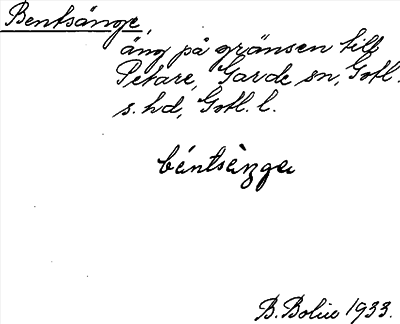 Bentsänge,
äng på gränsen till
Petare, Garde sn, Gotl.
s. hd, Gotl. l.
béntsèngɐ
B. Bolin 1933.